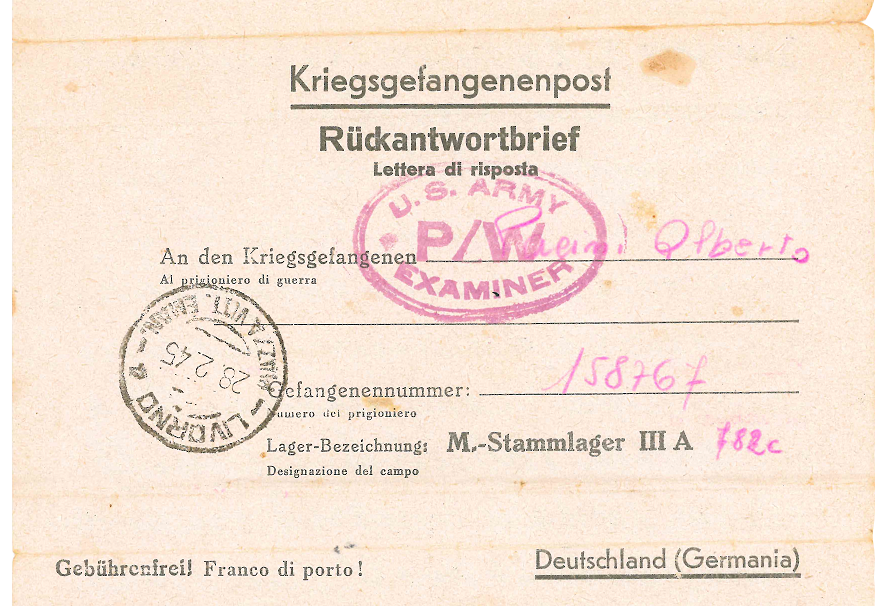 Kriegsgefangenenpost
Rückantwortbrief
Lettera di risposta
U.S. ARMY
P/W
EXAMINER
An den Kriegsgefangenen Alberto
Al prigioniero di guerra
PIAZZA VITT. EMAN.
28.2.45
LIVORNO
Gefangenennummer: 158767
Numero del prigioniero
Lager-Bezeichnung: M.-Stammlager III A 782c
Designazione del campo
Gebührenfrei! Franco di porto!
Deutschland (Germania)